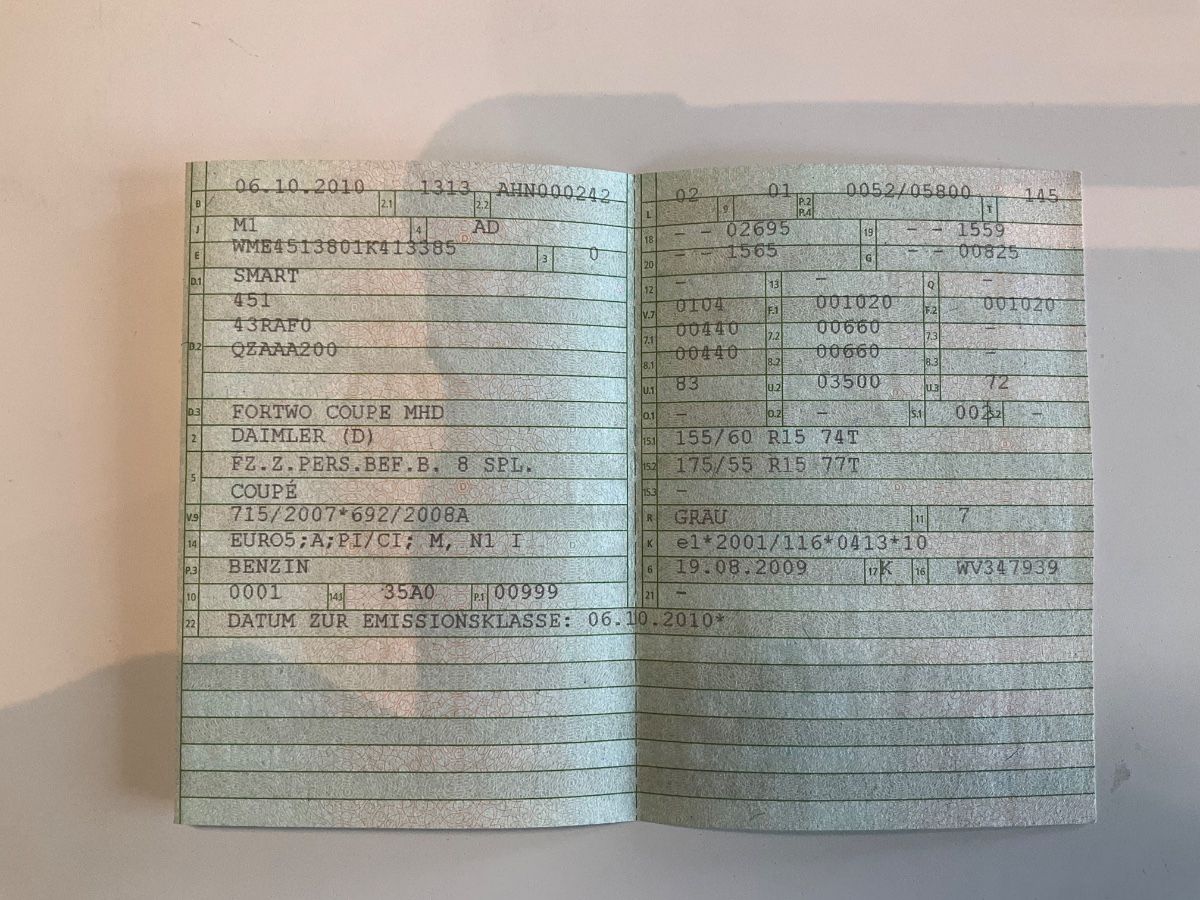 B 06.10.2010 2.1 1313 2.2 AHN000242
J M1 4 AD
E WME4513801K413385 3 0
D.1 SMART
451
43RAF0
D.2 QZAAA200
D.3 FORTWO COUPE MHD
2 DAIMLER (D)
5 FZ.Z.PERS.BEF.B. 8 SPL.
COUPÉ
V.9 715/2007*692/2008A
14 EURO5;A;PI/CI; M, N1 I
P.3 BENZIN
10 0001 14.1 35A0 P.1 00999
22 DATUM ZUR EMISSIONSKLASSE: 06.10.2010*
L 02 9 01 P.2 P.4 0052/05800 T 145
18 – – 02695 19 – – 1559
20 – – 1565 G – – 00825
12 – 13 – Q –
V.7 0104 F.1 001020 F.2 001020
7.1 00440 7.2 00660 7.3 –
8.1 00440 8.2 00660 8.3 –
U.1 83 U.2 03500 U.3 72
O.1 – O.2 – S.1 002 S.2 –
15.1 155/60 R15 74T
15.2 175/55 R15 77T
15.3 –
R GRAU 11 7
K e1*2001/116*0413*10
6 19.08.2009 17 K 16 WV347939
21 –